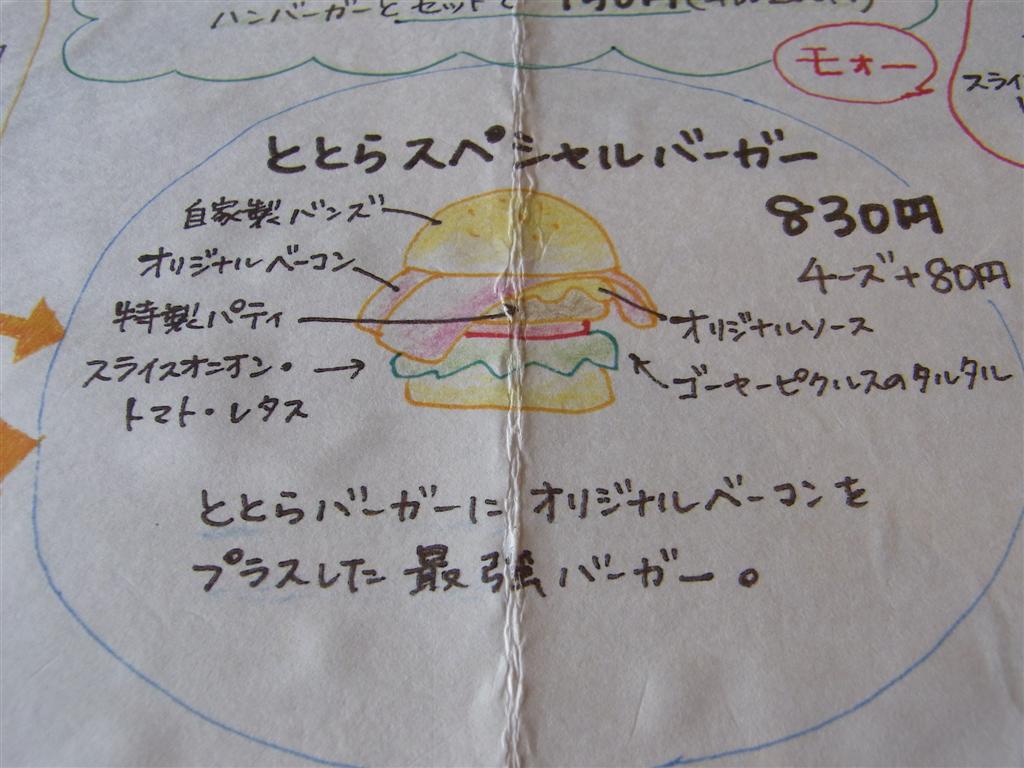 ハンバーガーと セットで
モォー
スライ
ととらスペシャルバーガー
830円
チーズ+80円
自家製バンズ
オリジナルベーコン
特製パティ
スライスオニオン・
トマト・レタス
オリジナルソース
ゴーヤーピクルスのタルタル
ととらバーガーに オリジナルベーコンを
プラスした 最強バーガー。